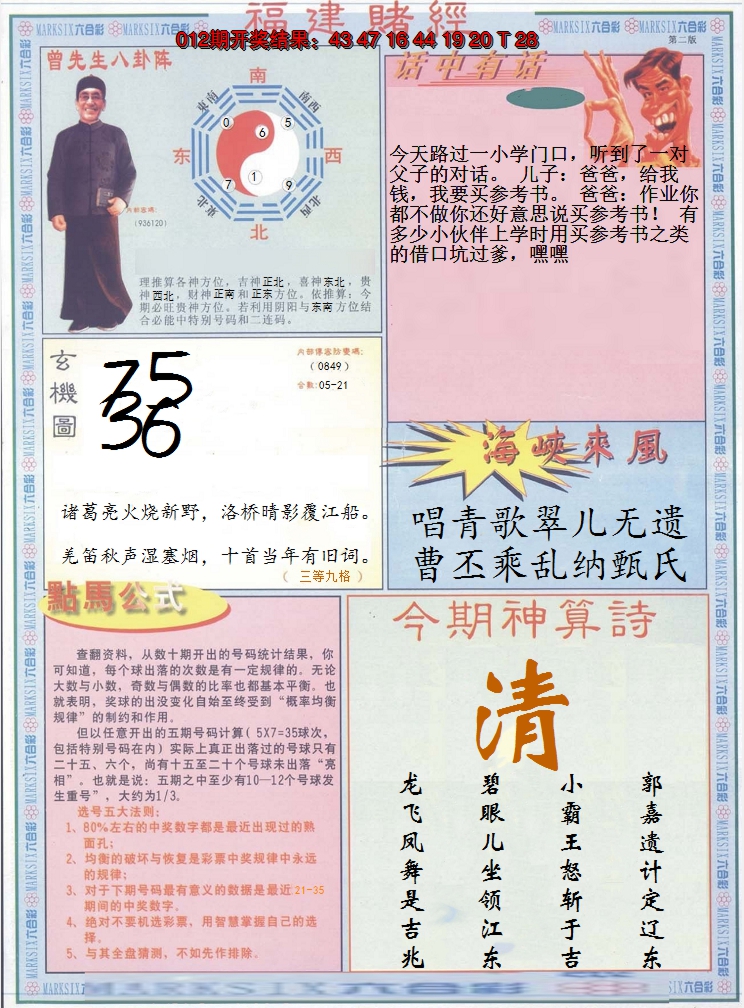 福建賭經
012期开奖结果：43 47 16 44 19 20 T 28
MARKSIX六合彩
第二版
曾先生八卦阵
南
东南
南西
0
5
6
东
西
7
1
9
東北
北西
北
內部密碼:
(936120)
理推算各神方位，吉神正北，喜神东北，贵
神西北，财神正南和正东方位。依推算：今
期必旺贵神方位。若利用阴阳与东南方位结
合必能中特别号码和二连码。
话中有话
今天路过一小学门口，听到了一对
父子的对话。 儿子：爸爸，给我
钱，我要买参考书。 爸爸：作业你
都不做你还好意思说买参考书！ 有
多少小伙伴上学时用买参考书之类
的借口坑过爹，嘿嘿
玄機圖
75
36
(0849)
合數:05-21
诸葛亮火烧新野，洛桥晴影覆江船。
羌笛秋声湿塞烟，十首当年有旧词。
（ 三等九格 ）
海峽來風
唱青歌翠儿无遗
曹丕乘乱纳甄氏
點馬公式
查翻资料，从数十期开出的号码统计结果，你
可知道，每个球出落的次数是有一定规律的。无论
大数与小数，奇数与偶数的比率也都基本平衡。也
就表明，奖球的出没变化自始至终受到“概率均衡
规律”的制约和作用。
但以任意开出的五期号码计算( 5X7=35球次，
包括特别号码在内）实际上真正出落过的号球只有
二十五、六个，尚有十五至二十个号球未出落“亮
相”。也就是说：五期之中至少有10—12个号球发
生重号”，大约为1/3。
选号五大法则：
1、80%左右的中奖数字都是最近出现过的熟
面孔；
2、均衡的破坏与恢复是彩票中奖规律中永远
的规律；
3、对于下期号码最有意义的数据是最近21-35
期间的中奖数字。
4、绝对不要机选彩票，用智慧掌握自己的选
择。
5、与其全盘猜测，不如先作排除。
今期神算詩
清
郭嘉遗计定辽东
小霸王怒斩于吉
碧眼儿坐领江东
龙飞凤舞是吉兆